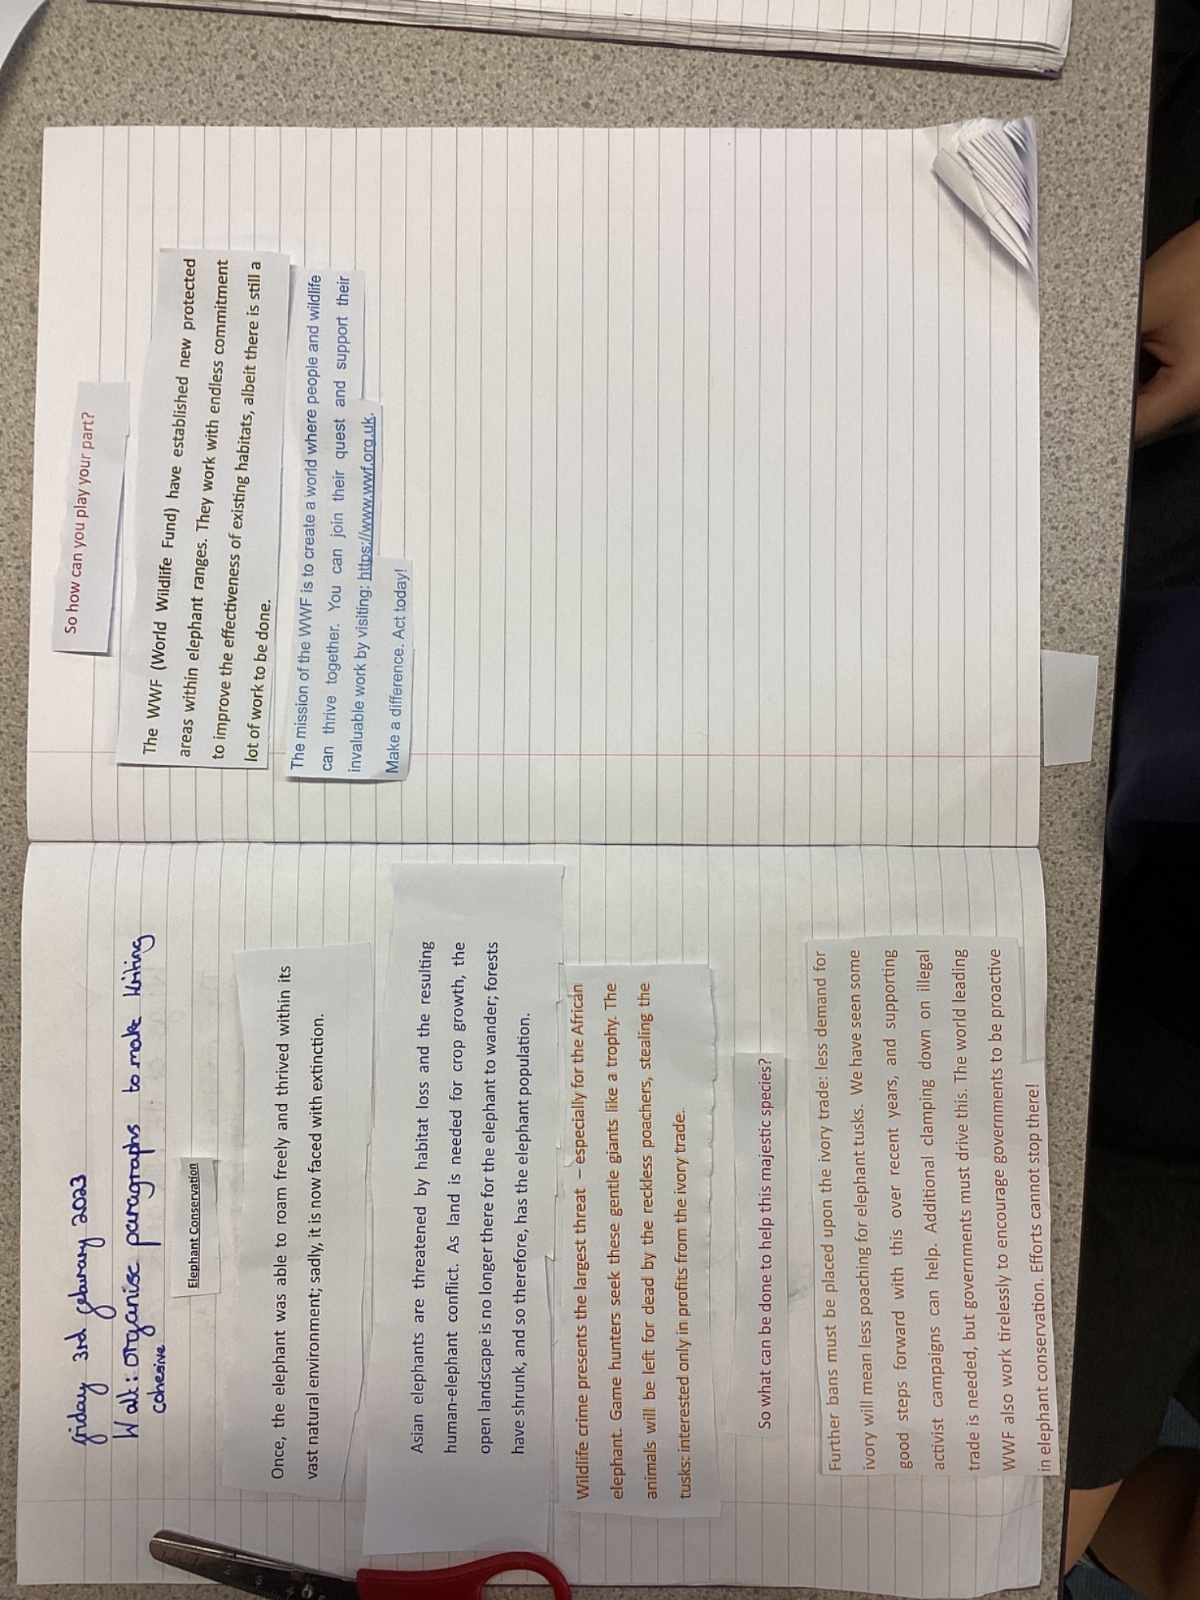 friday 3rd feburary 2023
Walt: organise paragraphs to make writing
cohesive
Elephant Conservation
Once, the elephant was able to roam freely and thrived within its
vast natural environment; sadly, it is now faced with extinction.
Asian elephants are threatened by habitat loss and the resulting
human-elephant conflict. As land is needed for crop growth, the
open landscape is no longer there for the elephant to wander; forests
have shrunk, and so therefore, has the elephant population.
Wildlife crime presents the largest threat – especially for the African
elephant. Game hunters seek these gentle giants like a trophy. The
animals will be left for dead by the reckless poachers, stealing the
tusks: interested only in profits from the ivory trade.
So what can be done to help this majestic species?
Further bans must be placed upon the ivory trade: less demand for
ivory will mean less poaching for elephant tusks. We have seen some
good steps forward with this over recent years, and supporting
activist campaigns can help. Additional clamping down on illegal
trade is needed, but governments must drive this. The world leading
WWF also work tirelessly to encourage governments to be proactive
in elephant conservation. Efforts cannot stop there!
So how can you play your part?
The WWF (World Wildlife Fund) have established new protected
areas within elephant ranges. They work with endless commitment
to improve the effectiveness of existing habitats, albeit there is still a
lot of work to be done.
The mission of the WWF is to create a world where people and wildlife
can thrive together. You can join their quest and support their
invaluable work by visiting: https://www.wwf.org.uk.
Make a difference. Act today!